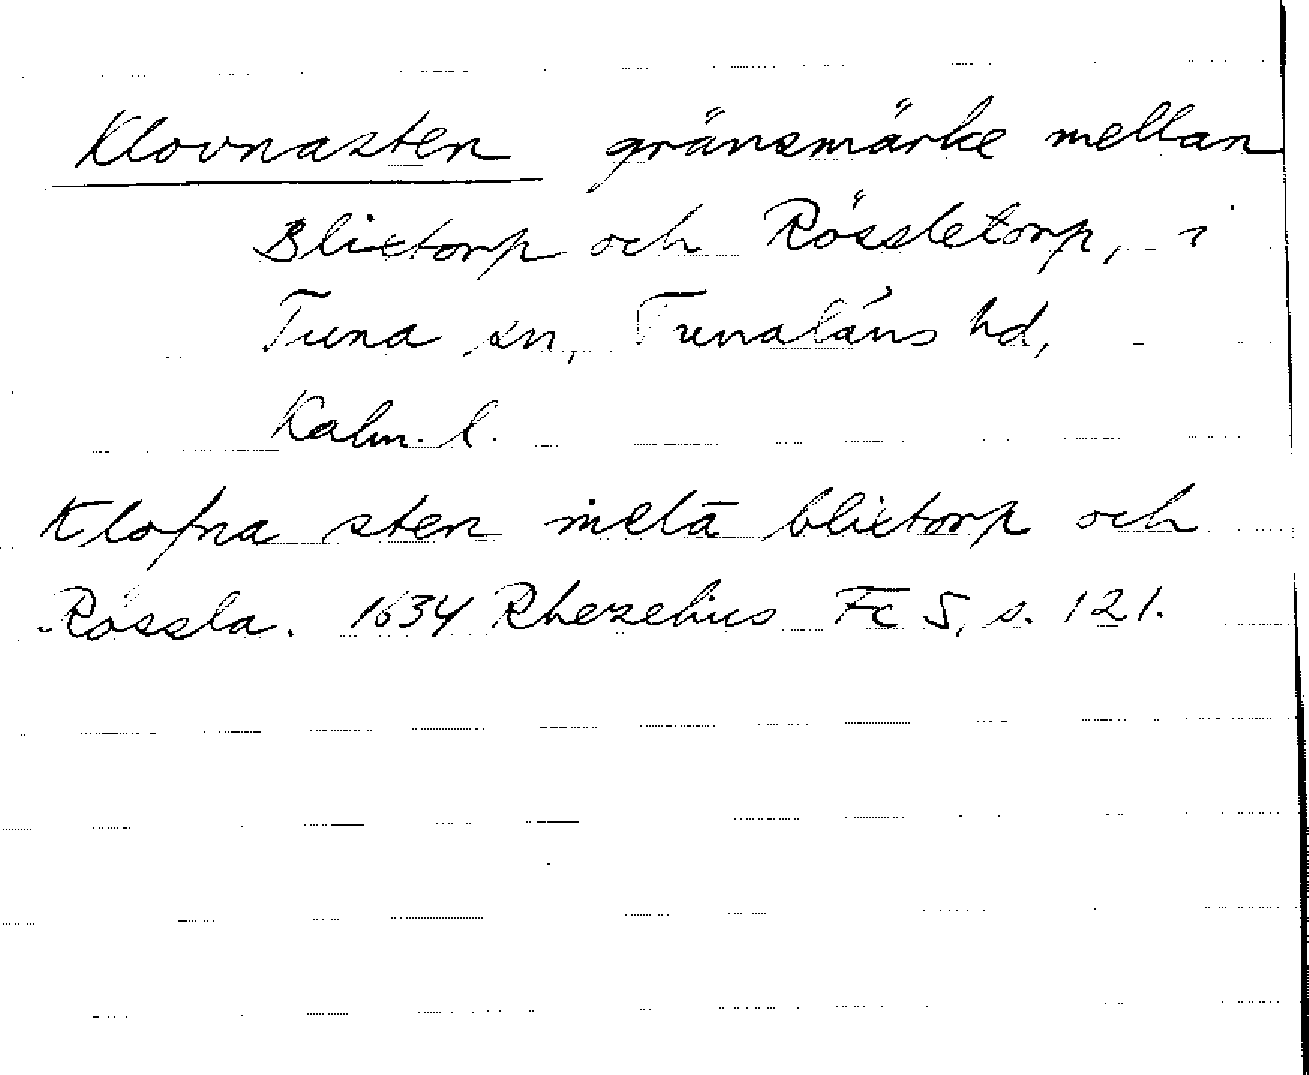 Klovnasten gränsmärke mellan
Blixtorp och Rössletorp, i
Tuna sn, Tunaläns hd,
Kalm. l.
Klofna sten melā blixtorp och
Rössla. 1634 Rhezelius Fc 5, s. 121.